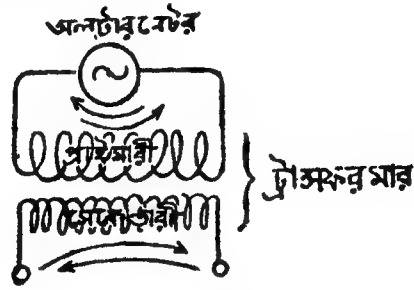 অলটারনেটর
প্রাইমারী
সেকেন্ডারী
ট্রান্সফরমার